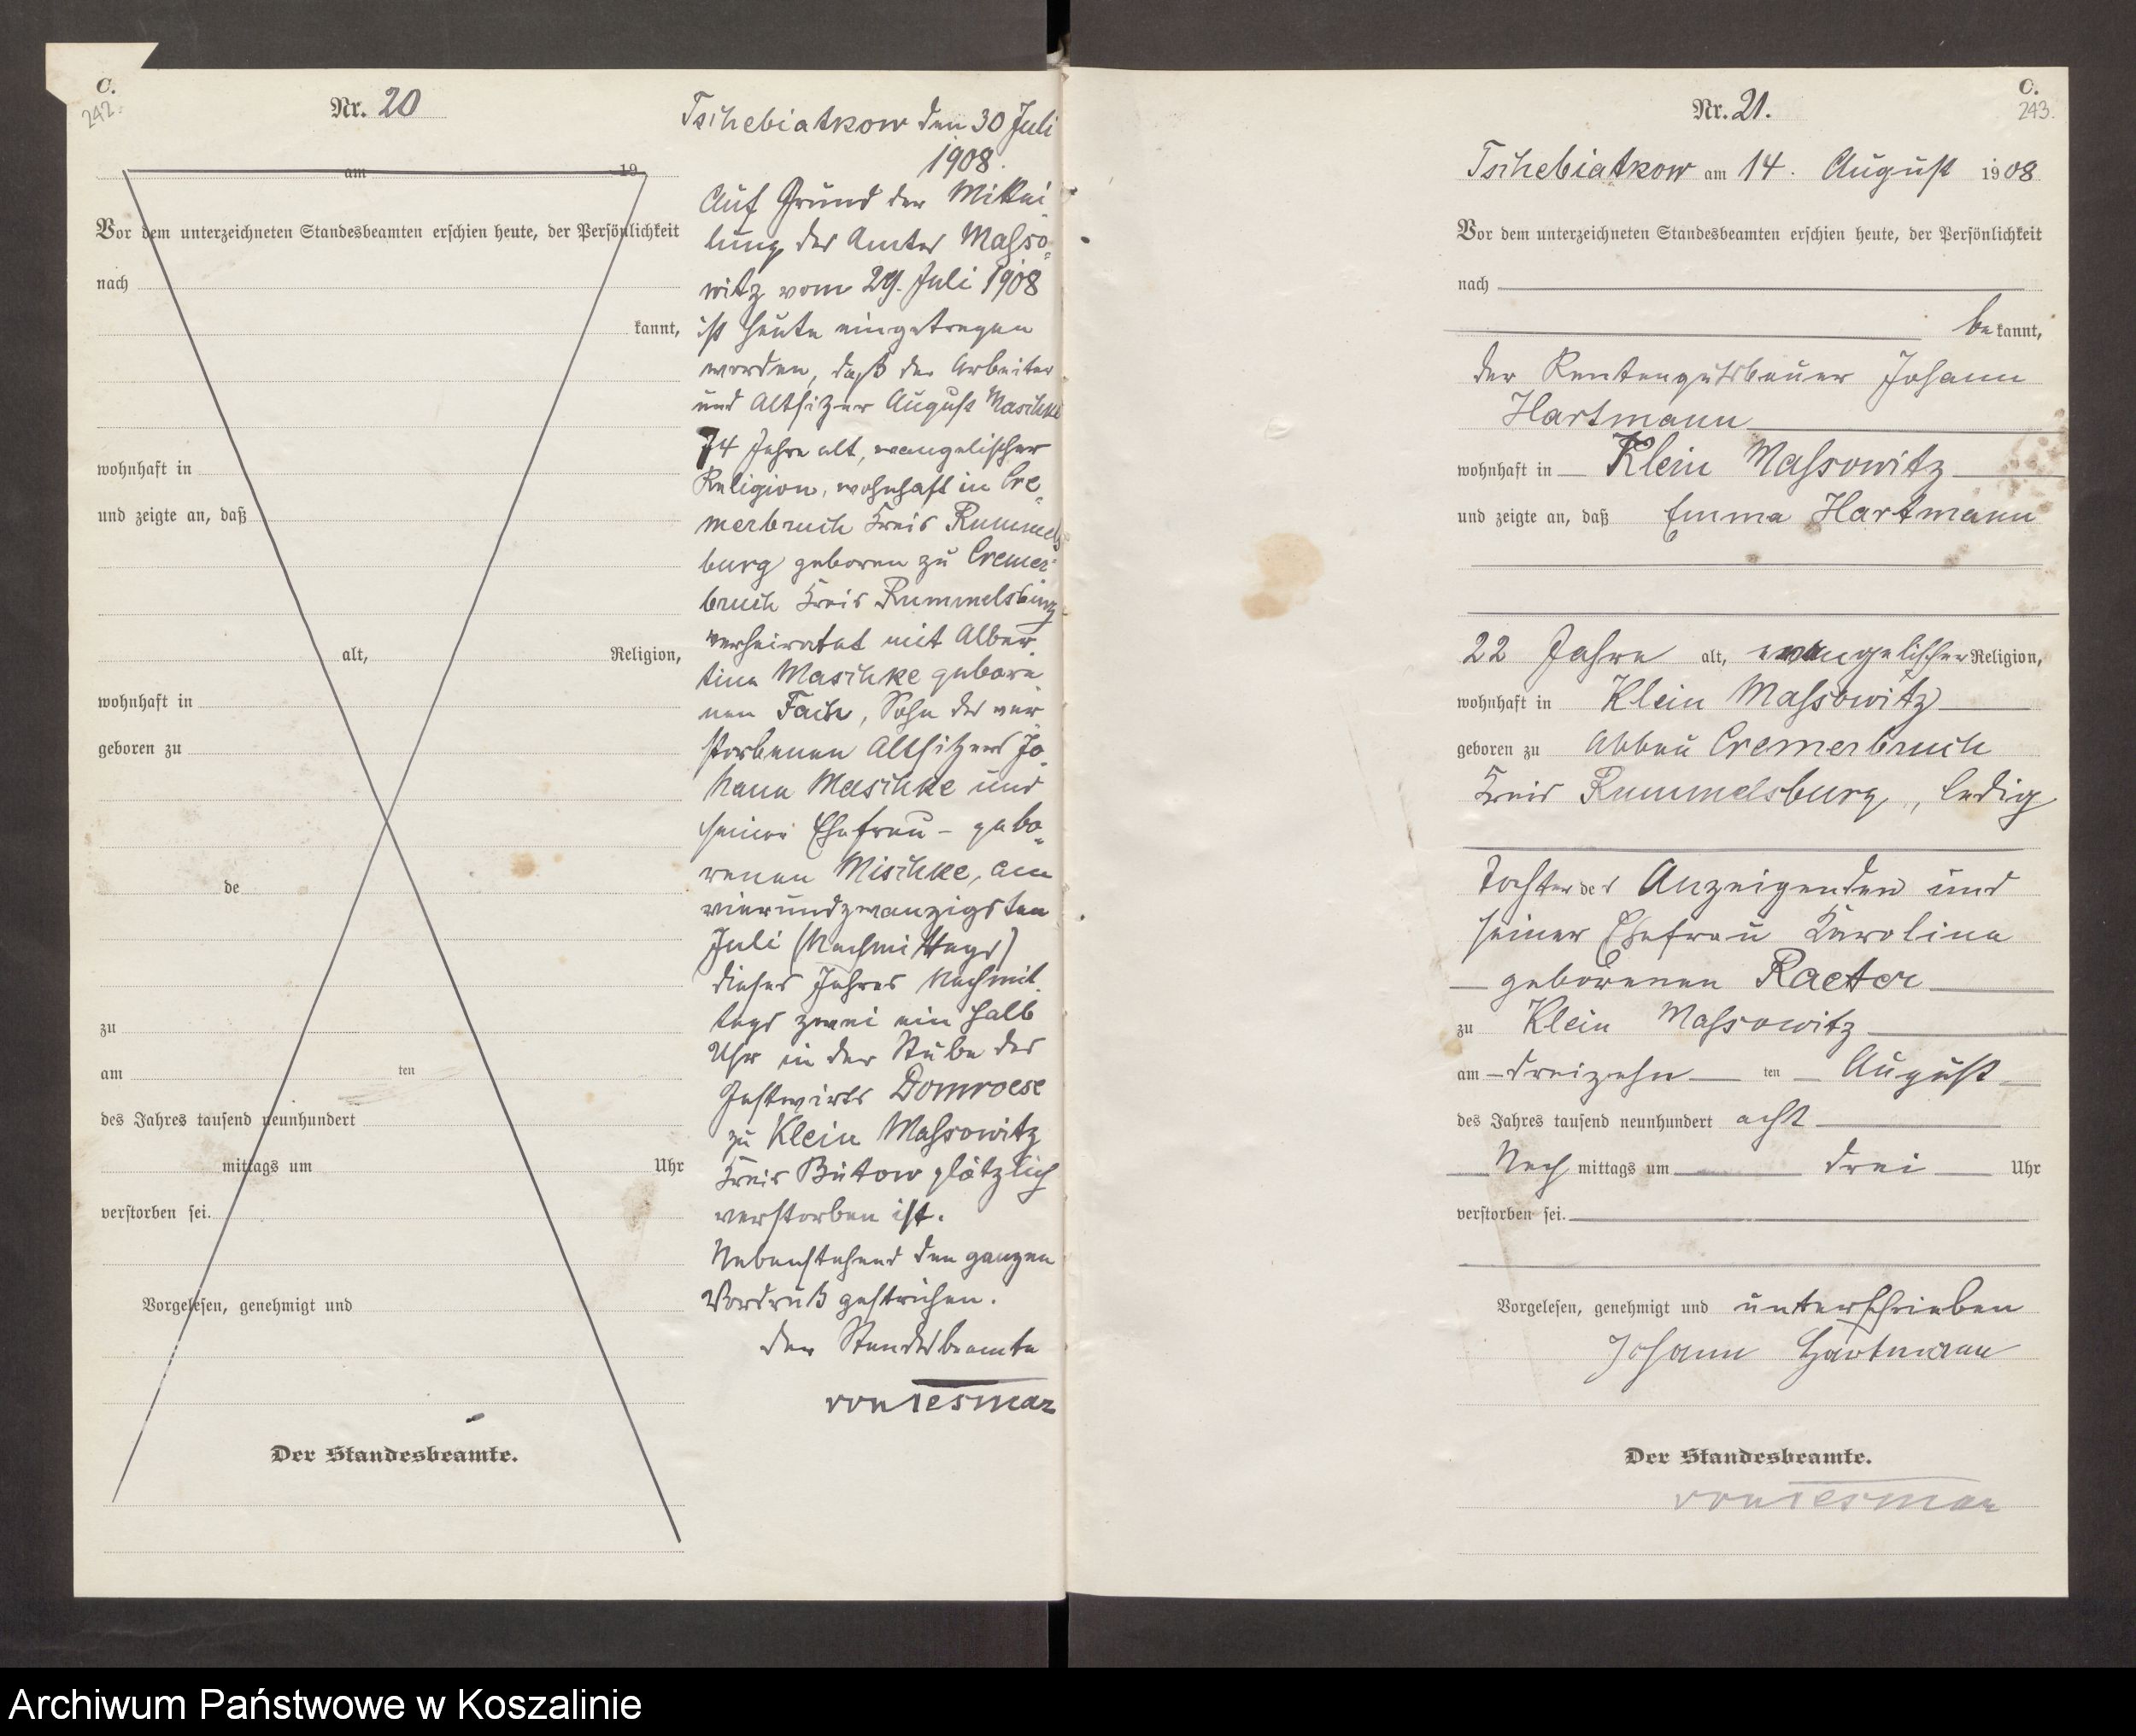 C.
242.
Nr. 20
am 19
Vor dem unterzeichneten Standesbeamten erschien heute, der Persönlichkeit
nach
kannt,
wohnhaft in
und zeigte an, daß
alt, Religion,
wohnhaft in
geboren zu
de
zu
am ten
des Jahres tausend neunhundert
mittags um Uhr
verstorben sei.
Vorgelesen, genehmigt und
Der Standesbeamte.
Tschebiatkow den 30 Juli
1908.
Auf Grund der Mittei-
lung des Amtes Masso-
witz vom 29. Juli 1908
ist heute eingetragen
worden, daß der Arbeiter
und Altsitzer August Maschke
74 Jahre alt, evangelischer
Religion, wohnhaft in Cre-
merbruch Kreis Rummels
burg geboren zu Cremer-
bruch Kreis Rummelsburg
verheiratet mit Alber-
tine Maschke gebore-
nen Fach, Sohn des ver-
storbenen Altsitzers Jo-
hann Maschke und
seiner Ehefrau - gebo-
renen Mischke, am
vierundzwanzigsten
Juli (Nachmittags)
dieses Jahres Nachmit-
tags zwei ein halb
Uhr in der Stube des
Gastwirts Domroese
zu Klein Massowitz
Kreis Bütow plötzlich
verstorben ist.
Nebenstehend den ganzen
Vordruck gestrichen.
Der Standesbeamte
von Tesmar
C.
243.
Nr. 21.
Tschebiatkow am 14. August 1908
Vor dem unterzeichneten Standesbeamten erschien heute, der Persönlichkeit
nach
bekannt,
der Rentengutsbauer Johann
Hartmann
wohnhaft in Klein Massowitz
und zeigte an, daß Emma Hartmann
22 Jahre alt, evangelischer Religion,
wohnhaft in Klein Massowitz
geboren zu Abbau Cremerbruch
Kreis Rummelsburg, ledig
Tochter des Anzeigenden und
seiner Ehefrau Karoline
geborenen Raetter
zu Klein Massowitz
am dreizehn ten August
des Jahres tausend neunhundert acht
Nach mittags um drei Uhr
verstorben sei.
Vorgelesen, genehmigt und unterschrieben
Johann Hartmann
Der Standesbeamte.
von Tesmar
Archiwum Państwowe w Koszalinie